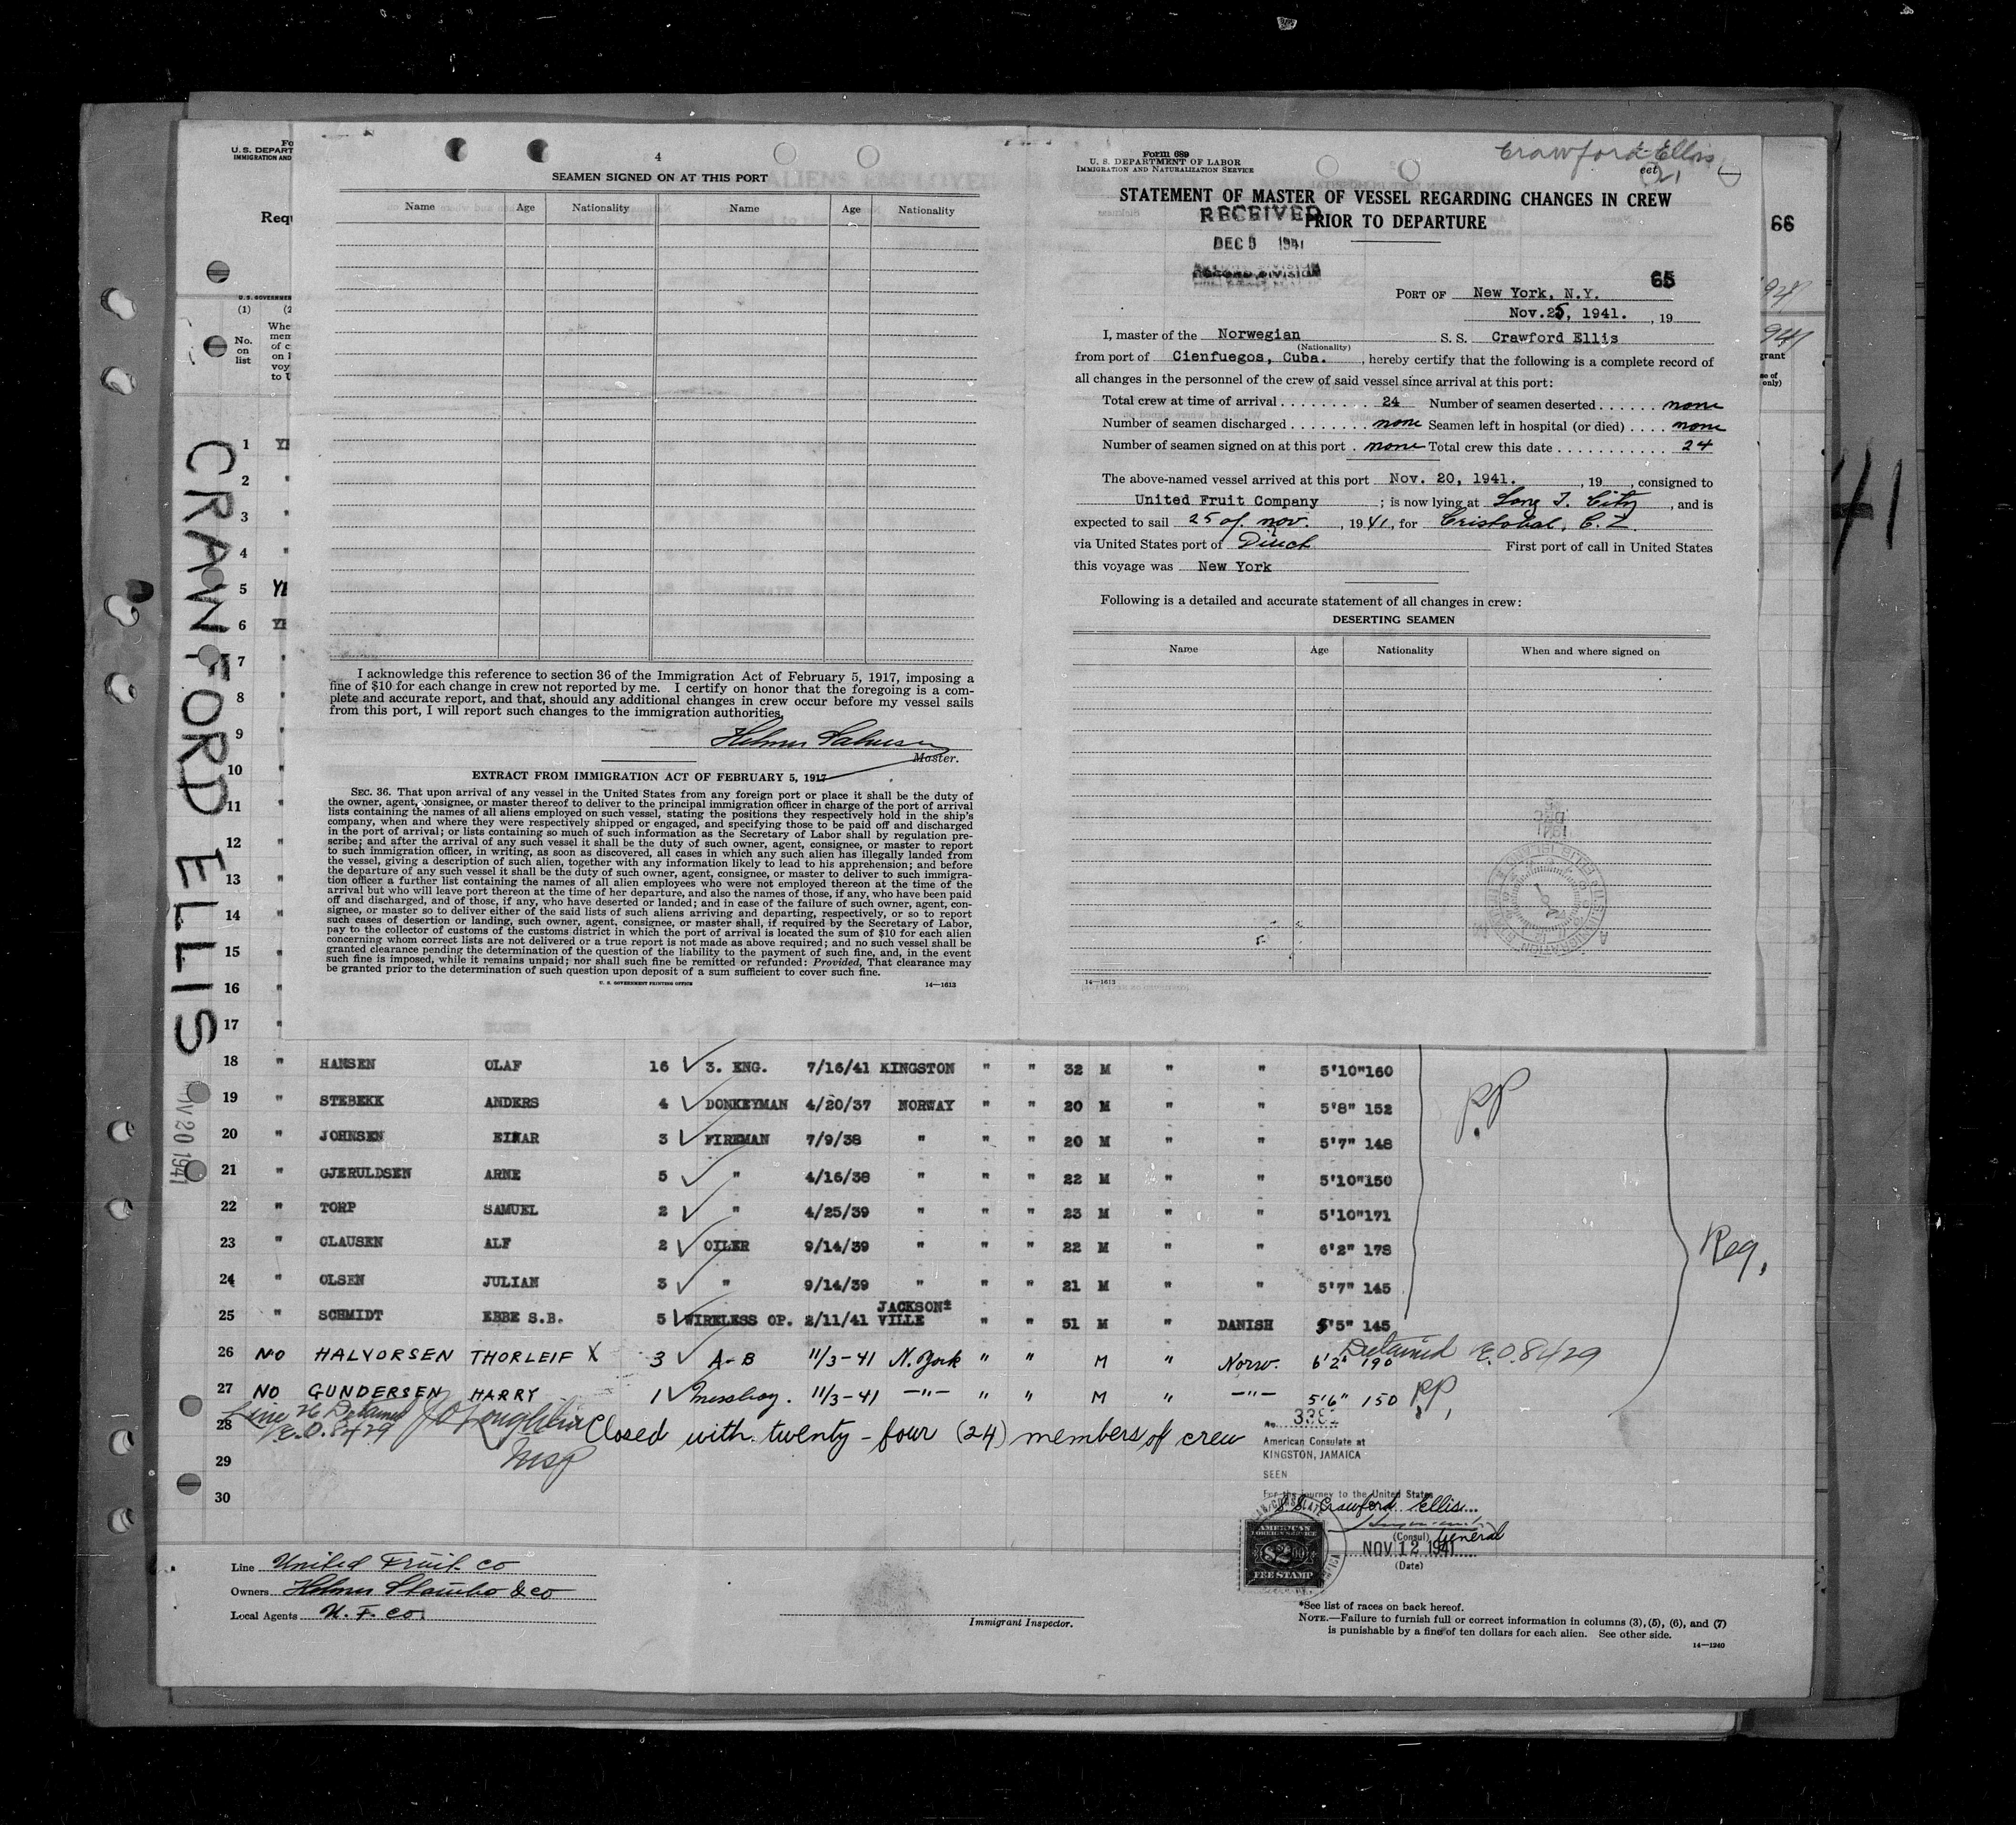 4
SEAMEN SIGNED ON AT THIS PORT
Name Age Nationality Name Age Nationality
I acknowledge this reference to section 36 of the Immigration Act of February 5, 1917, imposing a
fine of $10 for each change in crew not reported by me. I certify on honor that the foregoing is a com-
plete and accurate report, and that, should any additional changes in crew occur before my vessel sails
from this port, I will report such changes to the immigration authorities.
Master.
EXTRACT FROM IMMIGRATION ACT OF FEBRUARY 5, 1917
SEC. 36. That upon arrival of any vessel in the United States from any foreign port or place it shall be the duty of
the owner, agent, consignee, or master thereof to deliver to the principal immigration officer in charge of the port of arrival
lists containing the names of all aliens employed on such vessel, stating the positions they respectively hold in the ship's
company, when and where they were respectively shipped or engaged, and specifying those to be paid off and discharged
in the port of arrival; or lists containing so much of such information as the Secretary of Labor shall by regulation pre-
scribe; and after the arrival of any such vessel it shall be the duty of such owner, agent, consignee, or master to report
to such immigration officer, in writing, as soon as discovered, all cases in which any such alien has illegally landed from
the vessel, giving a description of such alien, together with any information likely to lead to his apprehension; and before
the departure of any such vessel it shall be the duty of such owner, agent, consignee, or master to deliver to such immigra-
tion officer a further list containing the names of all alien employees who were not employed thereon at the time of the
arrival but who will leave port thereon at the time of her departure, and also the names of those, if any, who have been paid
off and discharged, and of those, if any, who have deserted or landed; and in case of the failure of such owner, agent, con-
signee, or master so to deliver either of the said lists of such aliens arriving and departing, respectively, or so to report
such cases of desertion or landing, such owner, agent, consignee, or master shall, if required by the Secretary of Labor,
pay to the collector of customs of the customs district in which the port of arrival is located the sum of $10 for each alien
concerning whom correct lists are not delivered or a true report is not made as above required; and no such vessel shall be
granted clearance pending the determination of the question of the liability to the payment of such fine, and, in the event
such fine is imposed, while it remains unpaid; nor shall such fine be remitted or refunded: Provided, That clearance may
be granted prior to the determination of such question upon deposit of a sum sufficient to cover such fine.
U. S. GOVERNMENT PRINTING OFFICE 14—1613
Form 689
U. S. DEPARTMENT OF LABOR
IMMIGRATION AND NATURALIZATION SERVICE
Crawford Ellis
STATEMENT OF MASTER OF VESSEL REGARDING CHANGES IN CREW
PRIOR TO DEPARTURE
RECEIVED
DEC 5 1941
65
PORT OF New York, N.Y.
Nov.25, 1941. , 19
I, master of the Norwegian S. S. Crawford Ellis
(Nationality)
from port of Cienfuegos, Cuba. , hereby certify that the following is a complete record of
all changes in the personnel of the crew of said vessel since arrival at this port:
Total crew at time of arrival 24 Number of seamen deserted none
Number of seamen discharged none Seamen left in hospital (or died) none
Number of seamen signed on at this port none Total crew this date 24
The above-named vessel arrived at this port Nov. 20, 1941. , 19 , consigned to
United Fruit Company ; is now lying at Long I. City , and is
expected to sail 25 of nov. , 1941, for Cristobal, C. Z.
via United States port of Direct First port of call in United States
this voyage was New York
Following is a detailed and accurate statement of all changes in crew:
DESERTING SEAMEN
Name Age Nationality When and where signed on
14—1613
66
41
CRAWFORD ELLIS
20 1941
U. S. DEPART
IMMIGRATION AND
Requ
(1)
No. on list
1
2 "
3 "
4 "
5
6
7 "
8 "
9 "
10 "
11 "
12 "
13 "
14 "
15 "
16 "
17 "
18 " HANSEN OLAF 16 3. ENG. 7/16/41 KINGSTON " " 32 M " " 5'10" 160
19 " STEBEKK ANDERS 4 DONKEYMAN 4/20/37 NORWAY " " 20 M " " 5'8" 152
20 " JOHNSEN EINAR 3 FIREMAN 7/9/38 " " " 20 M " " 5'7" 148
21 " GJERULDSEN ARNE 5 " 4/16/38 " " " 22 M " " 5'10" 150
22 " TORP SAMUEL 2 " 4/25/39 " " " 23 M " " 5'10" 171
23 " CLAUSEN ALF 2 OILER 9/14/39 " " " 22 M " " 6'2" 178
24 " OLSEN JULIAN 3 " 9/14/39 " " " 21 M " " 5'7" 145
25 " SCHMIDT EBBE S.B. 5 WIRELESS OP. 2/11/41 JACKSONVILLE " " 51 M " DANISH 5'5" 145
26 NO HALVORSEN THORLEIF X 3 A-B 11/3-41 N. York " " M " Norw. 6'2" 190 Detained E.O. 8429
27 NO GUNDERSEN HARRY 1 messboy. 11/3-41 —"— " " M " —"— 5'6" 150 PP
PP
Reg.
Line 26 Detained
E.O. 8429
28 Closed with twenty-four (24) members of crew
29
30
American Consulate at
KINGSTON, JAMAICA
SEEN
For the journey to the United States
S.S. Crawford Ellis
(Consul) General
NOV 12 1941
(Date)
AMERICAN
FOREIGN SERVICE
$2.00
FEE STAMP
Line United Fruit Co
Owners
Local Agents U. F. Co.
Immigrant Inspector.
*See list of races on back hereof.
NOTE.—Failure to furnish full or correct information in columns (3), (5), (6), and (7)
is punishable by a fine of ten dollars for each alien. See other side.
14—1240